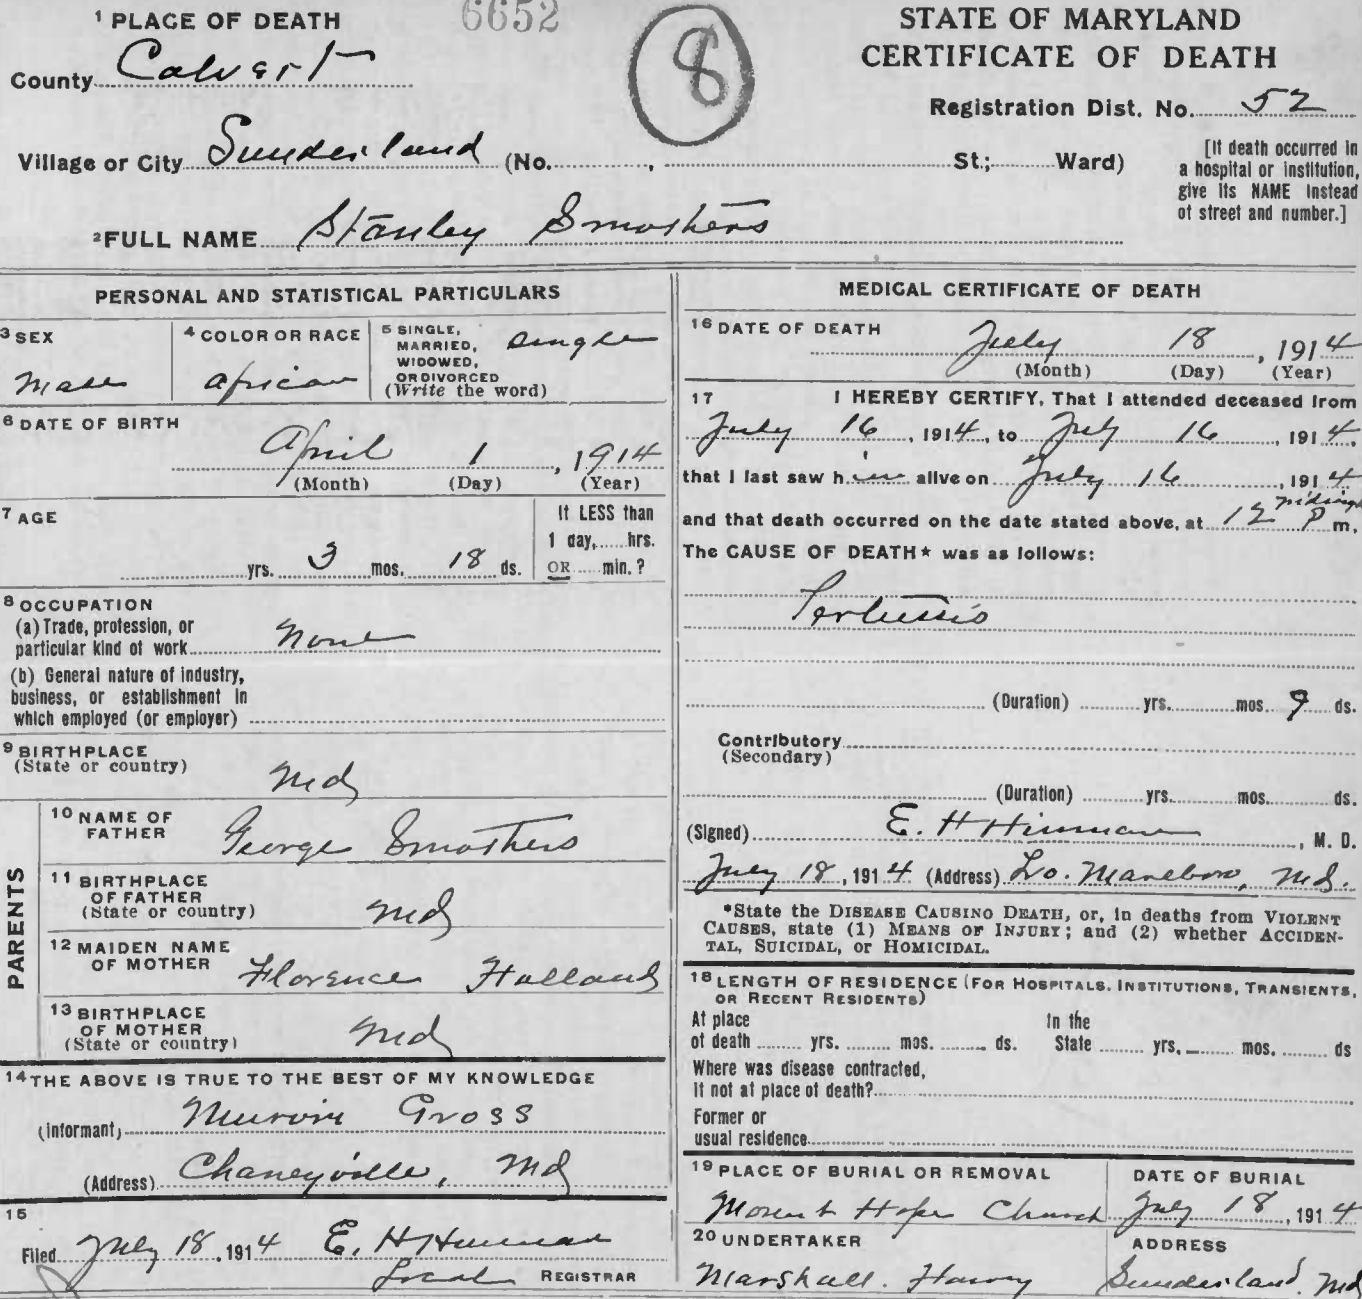 6652
8
STATE OF MARYLAND
CERTIFICATE OF DEATH
Registration Dist. No. 52
1 PLACE OF DEATH
County Calvert
Village or City Sunderland (No. , St.; Ward)
[If death occurred in
a hospital or institution,
give its NAME instead
of street and number.]
2 FULL NAME Stanley Smothers
PERSONAL AND STATISTICAL PARTICULARS
3 SEX
Male
4 COLOR OR RACE
African
5 SINGLE,
MARRIED,
WIDOWED,
OR DIVORCED
(Write the word)
Single
6 DATE OF BIRTH
April 1, 1914
(Month) (Day) (Year)
7 AGE
yrs. 3 mos. 18 ds.
If LESS than
1 day, hrs.
OR min.?
8 OCCUPATION
(a) Trade, profession, or
particular kind of work None
(b) General nature of industry,
business, or establishment in
which employed (or employer)
9 BIRTHPLACE
(State or country)
Md
PARENTS
10 NAME OF
FATHER
George Smothers
11 BIRTHPLACE
OF FATHER
(State or country)
Md
12 MAIDEN NAME
OF MOTHER
Florence Holland
13 BIRTHPLACE
OF MOTHER
(State or country)
Md
14 THE ABOVE IS TRUE TO THE BEST OF MY KNOWLEDGE
(Informant) Gross
(Address) Chaneyville, Md
15
Filed July 18, 1914 E. H Hinman
Local REGISTRAR
MEDICAL CERTIFICATE OF DEATH
16 DATE OF DEATH
July 18, 1914
(Month) (Day) (Year)
17 I HEREBY CERTIFY, That I attended deceased from
July 16, 1914, to July 16, 1914,
that I last saw him alive on July 16, 1914
and that death occurred on the date stated above, at 12 midnight P m.
The CAUSE OF DEATH* was as follows:
Pertussis
(Duration) yrs. mos 9 ds.
Contributory
(Secondary)
(Duration) yrs. mos. ds.
(Signed) E. H Hinman, M. D.
July 18, 1914 (Address) Lo. Marlboro, Md.
*State the DISEASE CAUSING DEATH, or, in deaths from VIOLENT
CAUSES, state (1) MEANS OF INJURY; and (2) whether ACCIDEN-
TAL, SUICIDAL, or HOMICIDAL.
18 LENGTH OF RESIDENCE (FOR HOSPITALS, INSTITUTIONS, TRANSIENTS,
OR RECENT RESIDENTS)
At place
of death yrs. mos. ds.
In the
State yrs. mos. ds
Where was disease contracted,
If not at place of death?
Former or
usual residence
19 PLACE OF BURIAL OR REMOVAL
Mount Hope Church
DATE OF BURIAL
July 18, 1914
20 UNDERTAKER
Marshall. Harvey
ADDRESS
Sunderland. Md